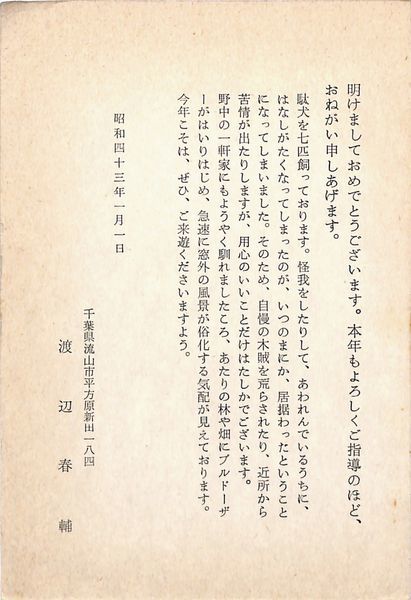 明けましておめでとうございます。本年もよろしくご指導のほど、
おねがい申しあげます。
駄犬を七匹飼っております。怪我をしたりして、あわれんでいるうちに、
はなしがたくなってしまったのが、いつのまにか、居据わったということ
になってしまいました。そのため、自慢の木賊を荒らされたり、近所から
苦情が出たりしますが、用心のいいことだけはたしかでございます。
野中の一軒家にもようやく馴れましたころ、あたりの林や畑にブルドーザ
ーがはいりはじめ、急速に窓外の風景が俗化する気配が見えております。
今年こそは、ぜひ、ご来遊くださいますよう。
昭和四十三年一月一日
千葉県流山市平方原新田一八四
渡辺春輔